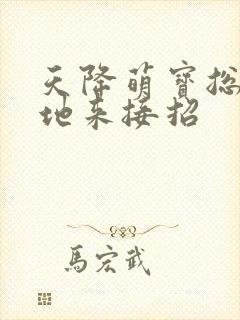 天降萌寶总
地来接招
馬宏武